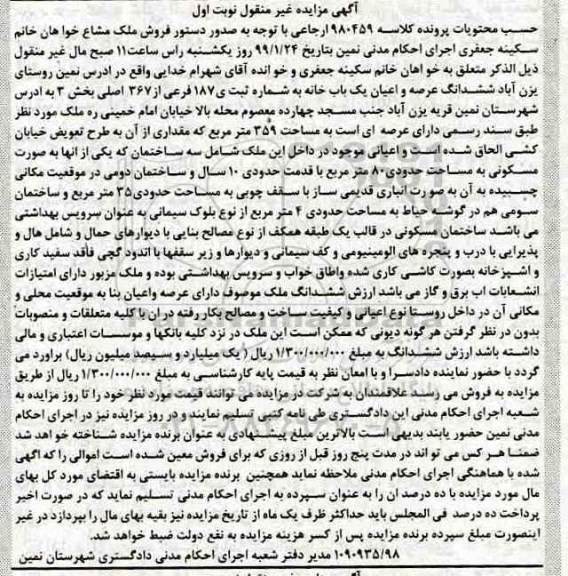 آگهی مزایده غیر منقول نوبت اول
حسب محتویات پرونده کلاسه ۹۸۰۴۵۹ ارجاعی با توجه به صدور دستور فروش ملک مشاع خوا هان خانم
سکینه جعفری اجرای احکام مدنی نمین بتاریخ ۹۹/۱/۲۴ روز یکشنبه راس ساعت۱۱ صبح مال غیر منقول
ذیل الذکر متعلق به خو اهان خانم سکینه جعفری و خوا نده آقای شهرام خدایی واقع در ادرس نمین روستای
یزن آباد ششدانگ عرصه و اعیان یک باب خانه به شماره ثبت ی۱۸۷ فرعی از۳۶۷ اصلی بخش ۳ به ادرس
شهرستان نمین قریه یزن آباد جنب مسجد چهارده معصوم محله بالا خیابان امام خمینی ره ملک مورد نظر
طبق سند رسمی دارای عرصه ای است به مساحت ۳۵۹ متر مربع که مقداری از آن به طرح تعویض خیابان
کشی الحاق شده است و اعیانی موجود در داخل این ملک شامل سه ساختمان که یکی از انها به صورت
مسکونی به مساحت حدودی۸۰ متر مربع با قدمت حدودی ۱۰ سال و ساختمان دومی در موقعیت مکانی
چسبیده به آن به صو رت انباری قدیمی ساز با سقف چوبی به مساحت حدودی۳۵ متر مربع و ساختمان
سو‌می هم در گوشه حیاط به مساحت حدودی ۴ متر مربع از نوع بلوک سیمانی به عنوان سرویس بهداشتی
می باشد ساختمان مسکونی در قالب یک طبقه همکف از نوع مصالح بنایی با دیوارهای حمال و شامل هال و
پذیرایی با درب و پنجره های الومینیومی و کف سیمانی و دیوارها و زیر سقفها با اندود گچی فاقد سفید کاری
و اشپزخانه بصورت کاشی کاری شده واطاق خواب و سرویس بهداشتی بوده و ملک مزبور دارای امتیازات
انشعابات اب برق و گاز می باشد ارزش ششدانگ ملک موصوف دارای عرصه واعیان بنا به موقعیت محلی و
مکانی آن در داخل روستا نوع اعیانی و کیفیت ساخت و مصالح بکار رفته در ان با کلیه متعلقات و منصوبات
بدون در نظر گرفتن هر گونه دیونی که ممکن است این ملک در نزد کلیه بانکها و موسسات اعتباری و مالی
داشته باشد ارزش ششدانگ به مبلغ ۱/۳۰۰/۰۰۰/۰۰۰ ریال ( یک میلیارد و سیصد میلیون ریال) براورد می
گردد با حضور نماینده دادسرا و با امعان نظر به قیمت پایه کارشناسی به مبلغ ۱/۳۰۰/۰۰۰/۰۰۰ ریال از طریق
مزایده به فروش می رسد علاقمندان به شرکت در مزایده می توانند قیمت مورد نظر خود را تا روز مزایده به
شعبه اجرای احکام مدنی این دادگستری طی نامه کتبی تسلیم نمایند و در روز مزایده نیز در اجرای احکام
مدنی نمین حضور یابند بدیهی است بالاترین مبلغ پیشنهادی به عنوان برنده مزایده شناخته خوا هد شد
ضمنا هر کس می تواند در مدت پنج روز قبل از روزی که برای فروش معین شده است اموالی را که اگهی
شده با هماهنگی اجرای احکام مدنی ملاحظه نماید همچنین برنده مزایده بایستی به اقتضای مورد کل بهای
مال مورد مزایده یا ده درصد ان را به عنوان سپرده به اجرای احکام مدنی تسلیم نماید که در صورت اخیر
پرداخت ده درصد فی المجلس باید حداکثر ظرف یک ماه از تاریخ مزایده نیز بقیه بهای مال را بپردازد در غیر
اینصورت مبلغ سپرده برنده مزایده پس از کسر هزینه مزایده به نفع دولت ضبط خواهد شد.
۱۰۹۰۹۳۵/۹۸ مدیر دفتر شعبه اجرای احکام مدنی دادگستری شهرستان نمین